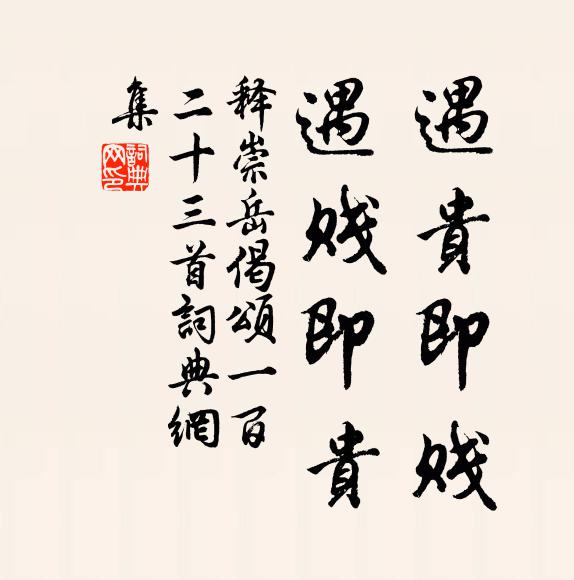 遇貴即贱
遇贱即貴
释崇岳偈頌一百
二十三首詞典網
集
詞典網印